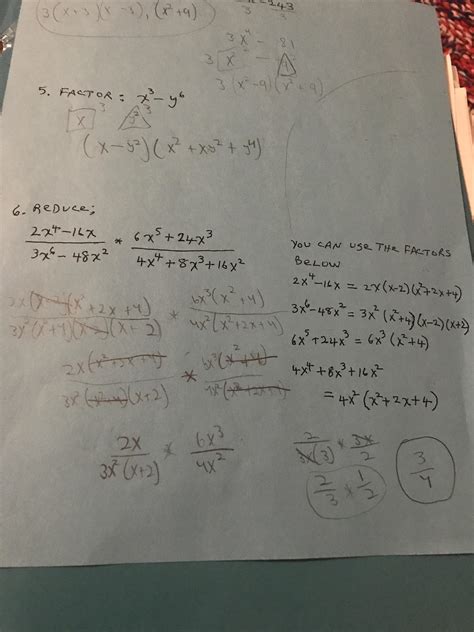 3(x+3)(x-3), (x²+9)
243
3 3
3x⁴ - 81
3 x² -
3(x²-9)(x²+9)
5. FACTOR: x³ - y⁶
x ³ y² ³
(x-y²)(x²+xy²+y⁴)
6. REDUCE;
2x⁴-16x / 3x⁶-48x² * 6x⁵+24x³ / 4x⁴+8x³+16x²
YOU CAN USE THE FACTORS
BELOW
2x⁴-16x = 2x(x-2)(x²+2x+4)
3x⁶-48x² = 3x²(x²+4)(x-2)(x+2)
6x⁵+24x³ = 6x³(x²+4)
4x⁴+8x³+16x²
= 4x²(x²+2x+4)
2x(x-2)(x²+2x+4) / 3x²(x²+4)(x-2)(x+2) * 6x³(x²+4) / 4x²(x²+2x+4)
2x(x²+2x+4) / 3x²(x²+4)(x+2) * 6x³(x²+4) / 4x²(x²+2x+4)
2x / 3x²(x+2) * 6x³ / 4x²
2 / 3x(3) * 3x / 2
2/3 * 1/2
3/4